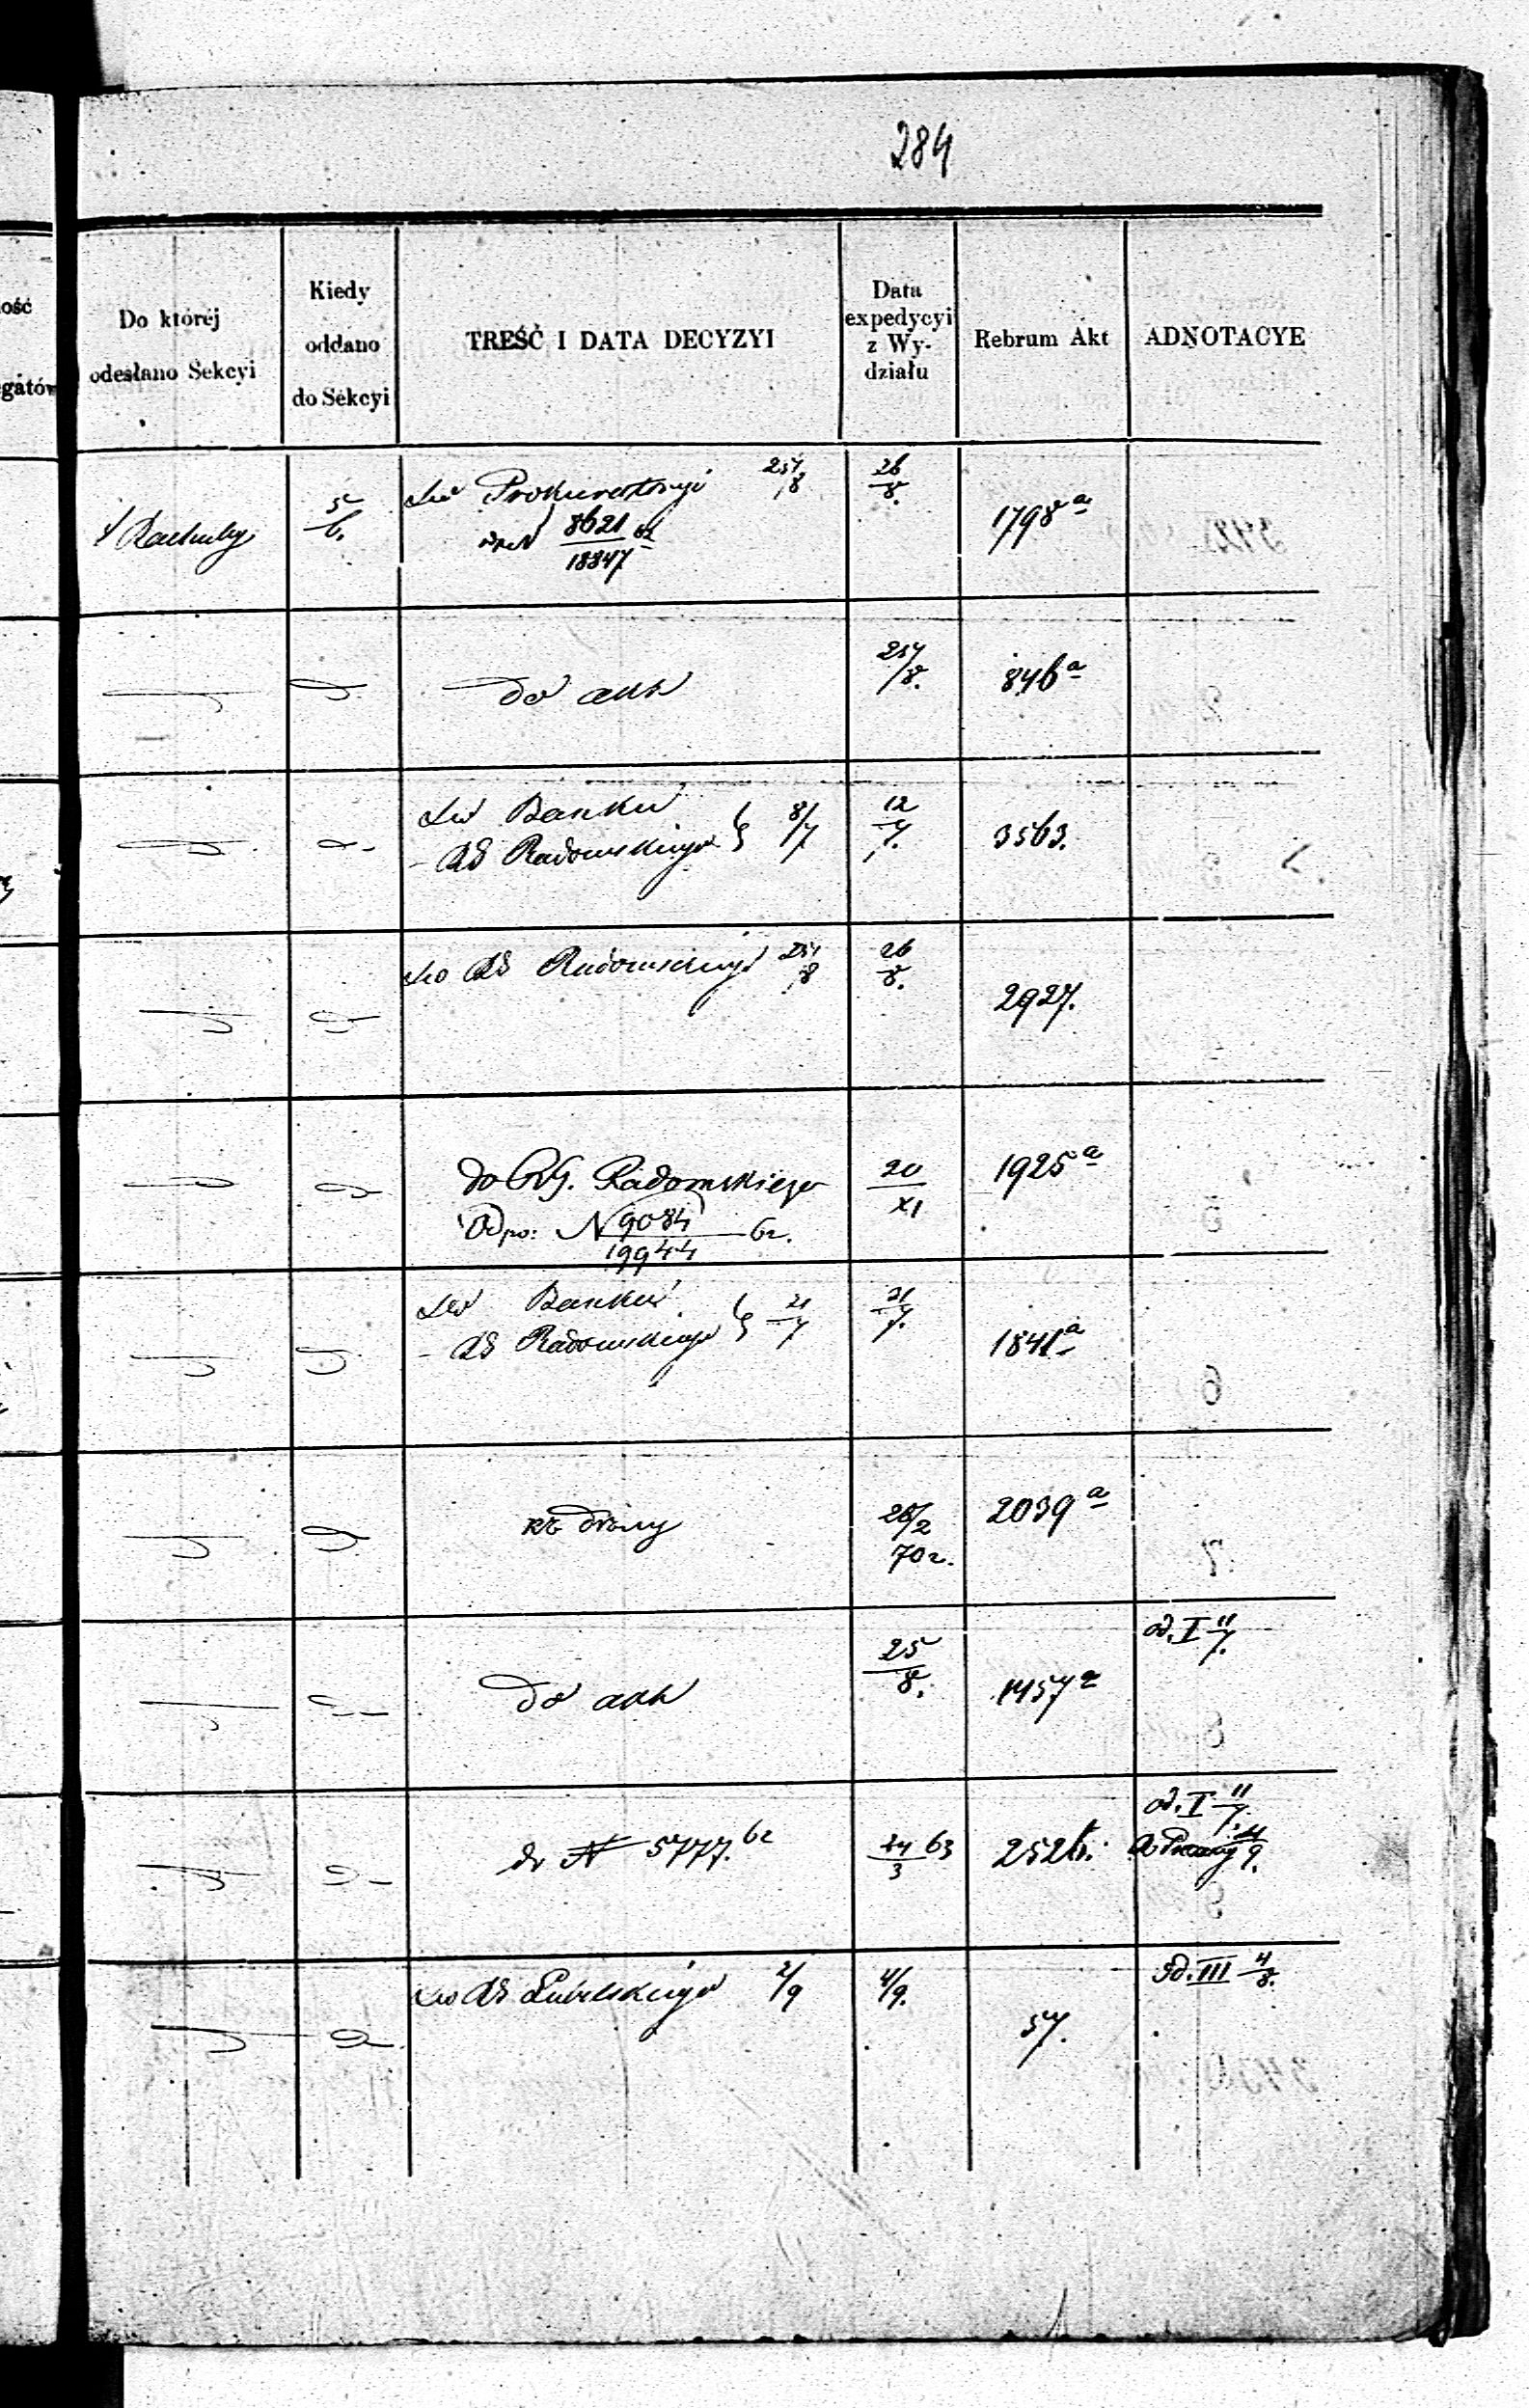 284
ość
gatów
Do której
odesłano Sekcyi
Kiedy
oddano
do Sekcyi
TREŚĆ I DATA DECYZYI
Data
expedycyi
z Wy-
działu
Rebrum Akt
ADNOTACYE
5/6.
Do Prokuratoryi 27/8
8621/18347 62
26/8.
1798 a
do akt
27/8.
846 a
Do Banku
- RG Radomskiego } 8/7
12/7.
3563.
Do RG Radomskiego 27/8
26/8.
2927.
do RG. Radomskiego
Odpo: N 9084/19944 62.
20/XI
1925 a
Do Banku
- RG Radomskiego } 21/7
21/7.
1841 a
26/2
70 r.
2039 a
do akt
25/8.
1457 a
od. I 11/7.
do N 5777. 62
24/3 63
od. I 11/7.
Do RG Lubelskiego 2/9
4/9.
57.
od. III 4/8.